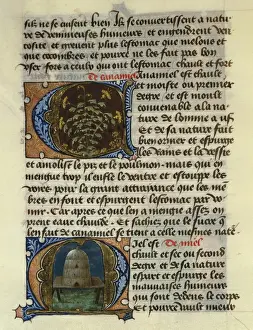 silz ne se cuisent bien Ilz se conuertissent a natu
re de venimeuses humeurs et engendrent ven
tosite et greuent plus lestomac que melons et
que cocombres et pouure ne les appaire pas bon
sec fors a ceulx qui ont lestomac chault et fort
De canamiel
anamiel est chaulde
et moiste ou premier
degre et est moult
conuenable a la natu
re de lomme a usaige
Et de sa nature fait
bien vriner et espurge
les rains et la vessie
et amolist le piz et le poulmon mais qui en
mengue trop il enfle le ventre et estouppe les
voies pour la grant attraiance que les mem
bres en font et espurgent lestomac par vo
mir Car apres ce que len a mengie assez on
prent eaue chaulde Et sachiez que le sucre que
len fait de canamiel se tient a celle mesmes nature
De miel
iel est
chault et sec ou second
degre et de sa nature
espart et espurge les
mauuaises humeurs
qui sont dedens le corps
et pour ce vault mieulx